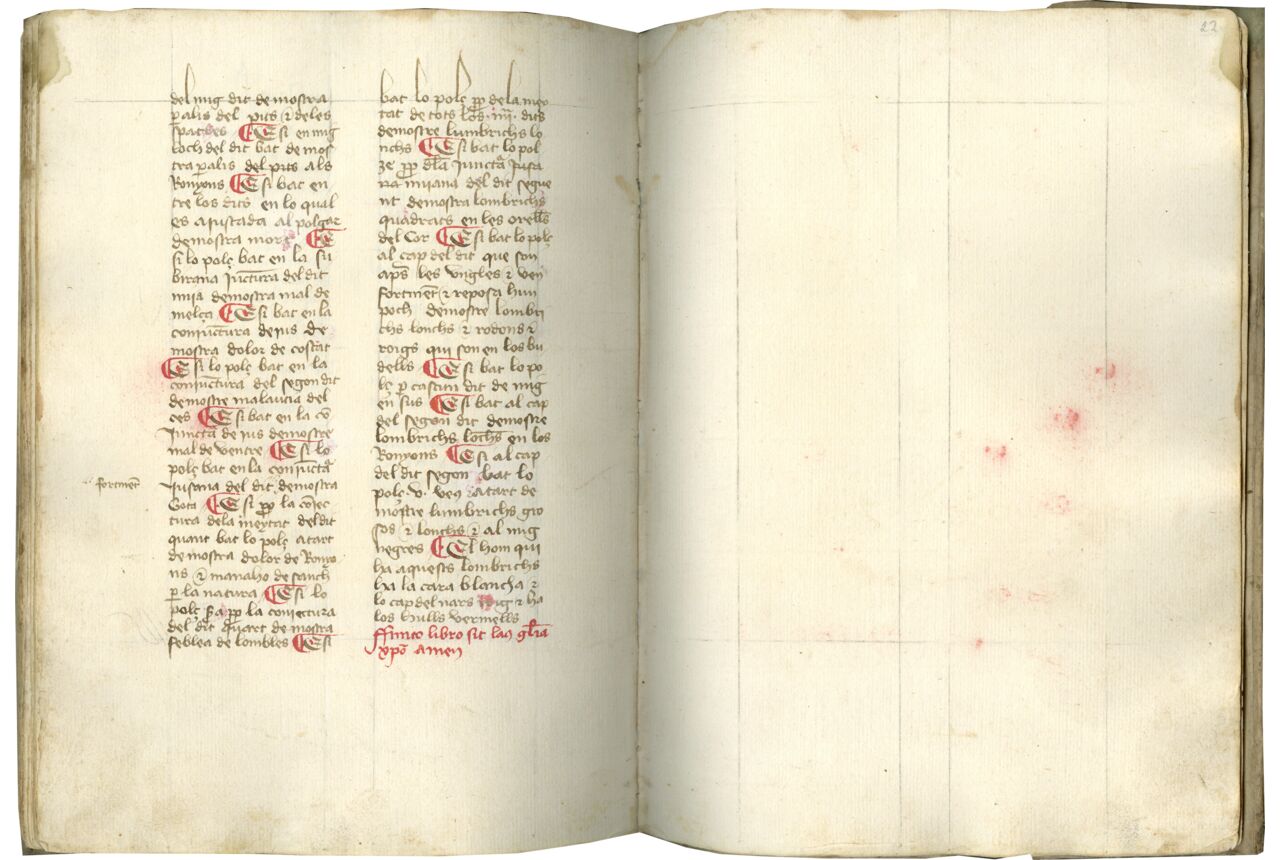 del mig dit demostra
palis del pits ⁊ deles
spatles ¶ E si en mig
loch del dit bat demos
tra palis del pits als
Ronyons ¶ E si bat en
tre los dits en lo qual
es aiustada al polgar
demostra morç ¶ E
si lo polç bat en la su
birana iuctura del dit
miia demostra mal de
melça ¶ E si bat en la
coniuctura deius de
mostra dolor de costat
¶ E si lo polç bat en la
coniuctura del segon dit
demostre malautia del
ces ¶ E si bat en la cō
Junctā de ius demostre
mal de ventre ¶ E si lo
polç bat en la coniuctā
Jusana del dit demostra
fortmēt
Gota ¶ E si ꝑ la cōiec
tura dela meytat del dit
quant bat lo polç atart
demostra dolor de Ronyo
ns ⁊ manaho de sanch
ꝑ la natura ¶ E si lo
polç ꝑ la coniectura
del dit quart demostra
feblea de lombles ¶ E si
bat lo polç ꝑ dela mey
tat de tots los .iiii. dits
demostre lumbrichs lo
nchs ¶ E si bat lo pol
ze ꝑ dla Junctā Jusa
na mijana del dit segue
nt demostra lombrichs
quadrats en les orells
del Cor ¶ E si bat lo polç
al cap del dit que son
aps les vngles ⁊ ven
fortmēt ⁊ reposa hun
poch demostre lombri
chs lonchs ⁊ rodons ⁊
roigs qui son en los bu
dells ¶ E si bat lo po
lç ꝑ cascun dit de mig
en sus ¶ E si bat al cap
del segon dit demostre
lombrichs lochs en los
Ronyons ¶ E si al cap
del dit segon bat lo
polç .v. ven atart de
mostre lumbrichs gro
sos ⁊ lonchs ⁊ al mig
negres ¶ El hom qui
ha aquests lombrichs
ha la cara blancha ⁊
lo cap del nars ⁊ ha
los hulls vermells
ffinito libro sit laus glīa
xpō amen
22